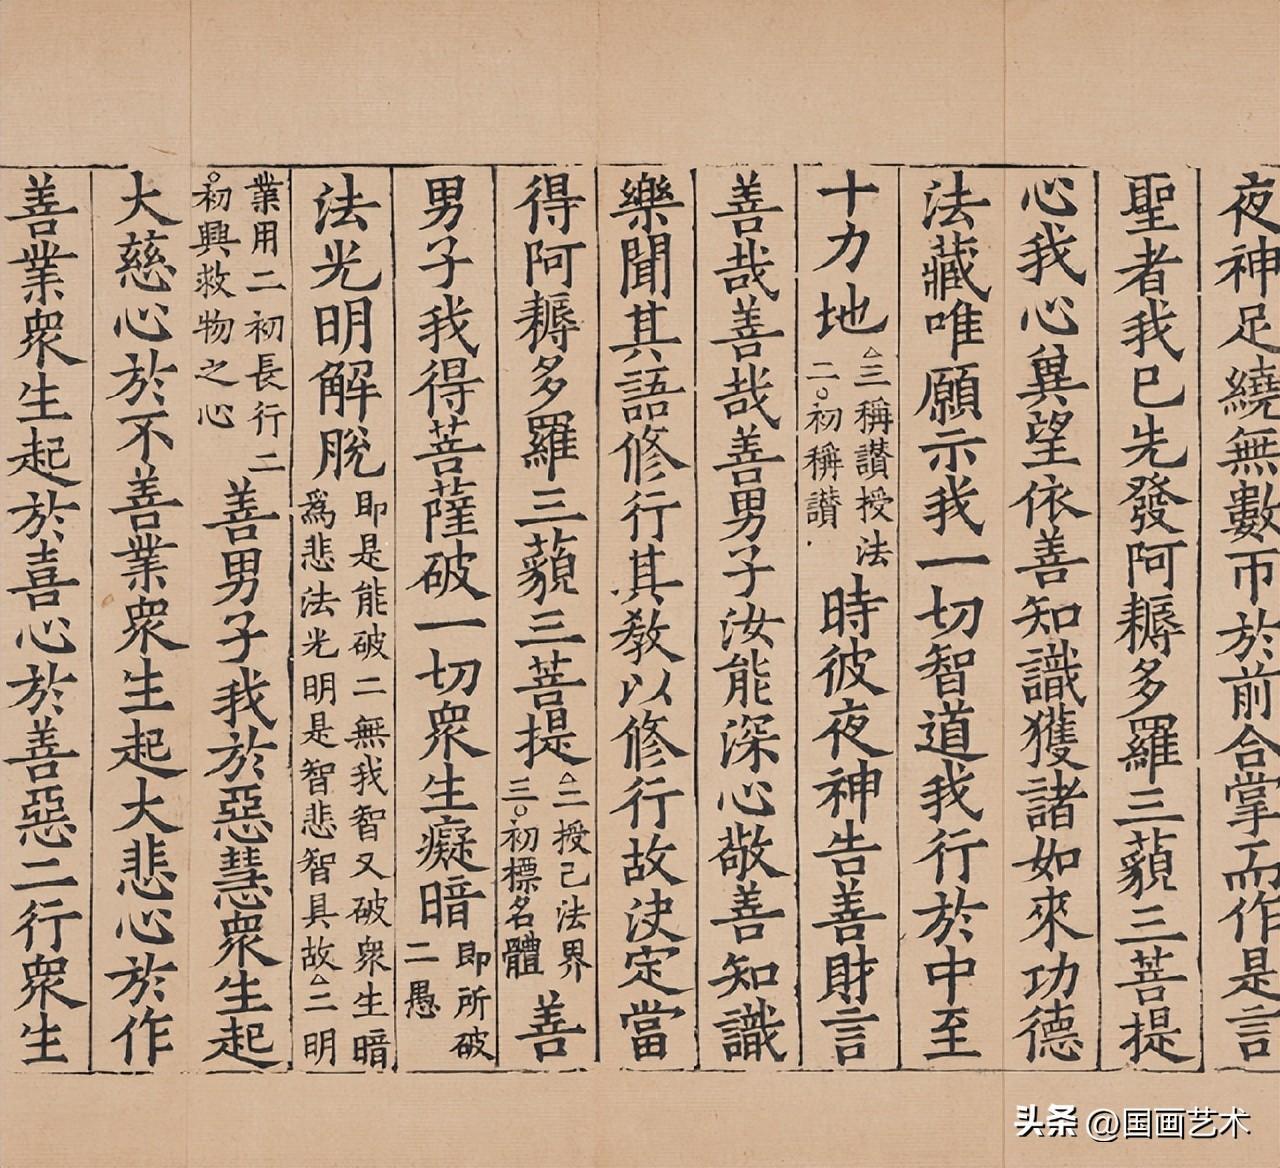 夜神足繞無數帀於前合掌而作是言
聖者我已先發阿耨多羅三藐三菩提
心我心兾望依善知識獲諸如來功德
法藏唯願示我一切智道我行於中至
十力地△三稱讃授法二○初稱讃時彼夜神告善財言
善哉善哉善男子汝能深心敬善知識
樂聞其語修行其教以修行故決定當
得阿耨多羅三藐三菩提△二授己法界三○初標名體善
男子我得菩薩破一切衆生癡暗即所破二愚
法光明解脫即是能破二無我智又破衆生暗爲悲法光明是智悲智具故△二明
業用二初長行二○初興救物之心善男子我於惡慧衆生起
大慈心於不善業衆生起大悲心於作
善業衆生起於喜心於善惡二行衆生
头条 @国画艺术